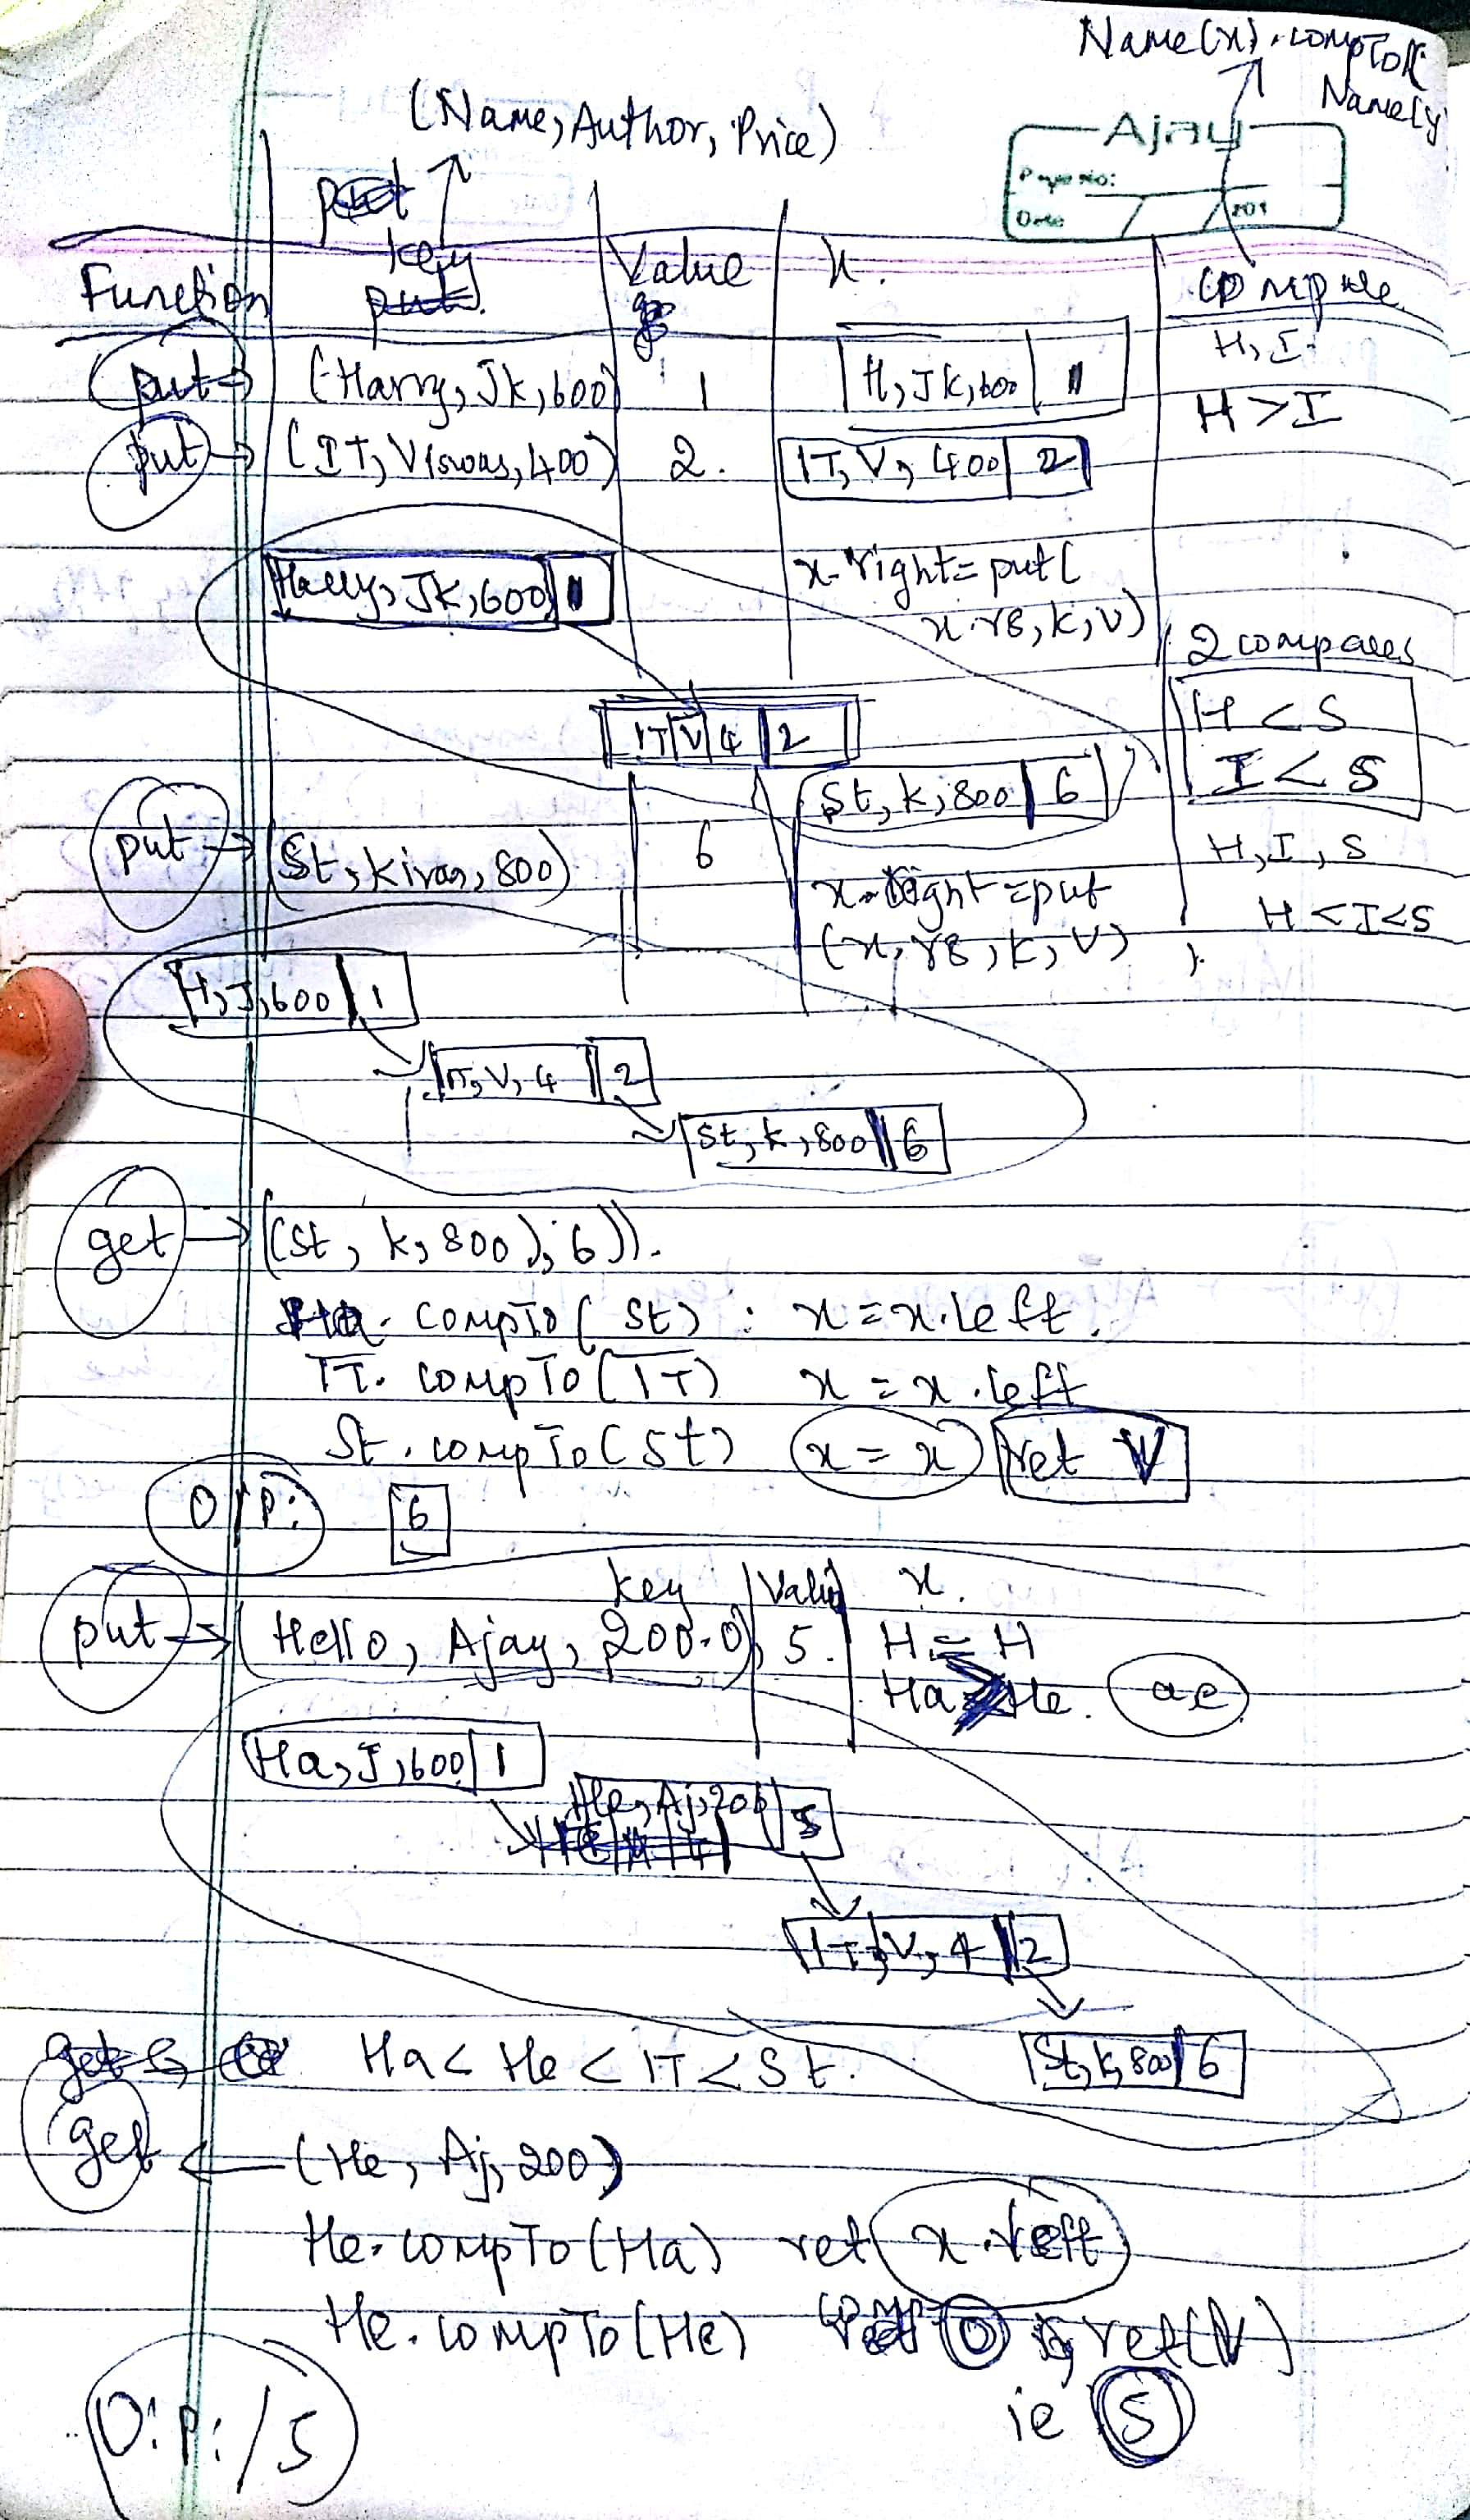 Name(x).compTo(
Name(y)
(Name, Author, Price)
Ajay
Page No:
Date / / 201
Function
key
Value
x.
compare
put → (Harry, Jk, 600) 1
H, Jk, 600 1
H, I
H > I
put → (IT, Viswas, 400) 2.
IT, V, 400 2
Harry, Jk, 600 1
x.right = put(
x.rg, k, v)
2 compares
H < S
I < S
IT V 4 2
St, k, 800 6
put → (St, Kiran, 800) 6
H, I, S
H < I < S
x.right = put
(x, rg, k, v)
H, J, 600 1
IT, V, 4 2
St, k, 800 6
get → ((St, k, 800), 6)).
Ha. compTo( St) : x = x.left.
IT. compTo(IT) x = x.left
St. compTo(St) x = x ret V
O/P: 6
key Value x.
put → (Hello, Ajay, 200.0), 5. H = H
Ha He. ae
Ha, J, 600 1
He, Aj, 200 5
IT, V, 4 2
St, k, 800 6
Ha < He < IT < St.
get ← (He, Aj, 200)
He. compTo(Ha) ret x.left
He. compTo(He) 0 ret(V)
ie 5
O:P:/5